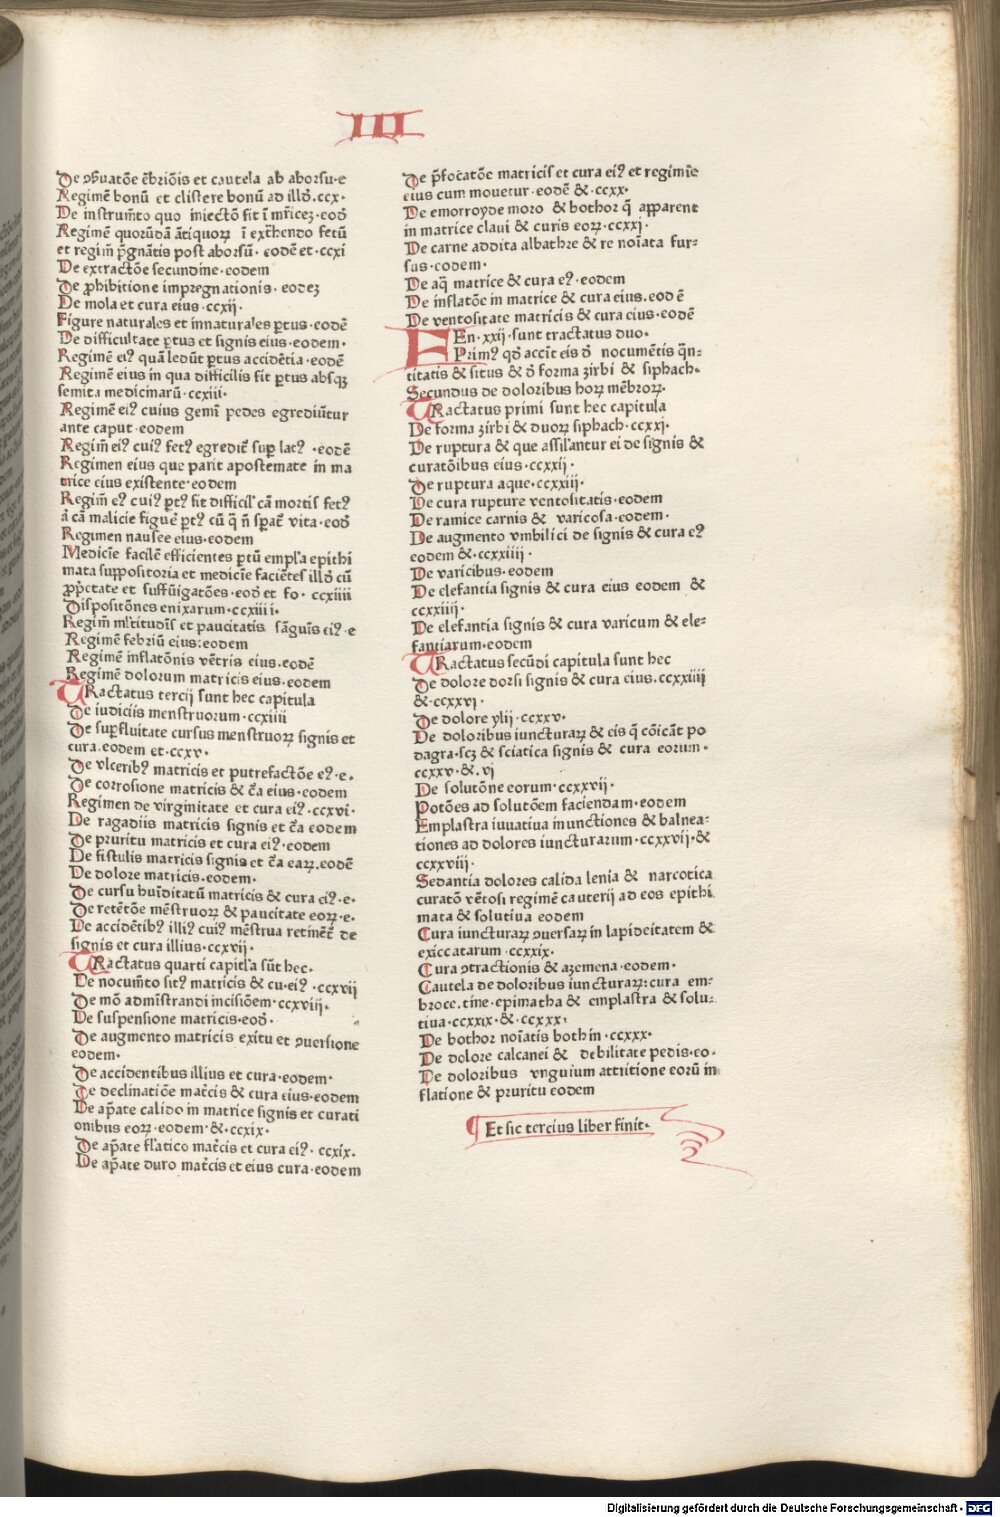 III
De ꝯſeruatõe ēbriõis et cautela ab aborſu·e
Regimē bonū et cliſtere bonū ad illd̄.ccx·
De inſtrum̄to quo iniectõ fit ī mr̄icez·eod̄
Regimē quorūdā ātiquoꝝ ī ext̄hendo fetū
et regim̄ p̄gnātis poſt aborſū· eodē et·ccxi
De extractōe ſecundine·eodem
De ꝓhibitione impregnationis·eodez
De mola et cura eius·ccxij·
Figure naturales et innaturales ꝑtus·eodē
De difficultate ꝑtus et ſignis eius·eodem·
Regimē eiꝰ quā ledūt ꝑtus accidētia·eodē
Regimē eius in qua difficilis fit ꝑtus abſqꝫ
ſemita medicinarū·ccxiii·
Regimē eiꝰ cuius gemī pedes egrediūtur
ante caput·eodem
Regim̄ eiꝰ cuiꝰ fetꝰ egredit̄ ſuꝑ latꝰ ·eodē
Regimen eius que parit apoſtemate in ma
trice eius exiſtente·eodem
Regim̄ eꝰ cuiꝰ ꝑtꝰ fit difficil' cā mortis fetꝰ
Regimen nauſee eius·eodem
Medicīe facilē efficientes ꝑtū empl'a epithi
mata ſuppoſitoria et medicīe faciētes illd̄ cū
ꝓp̄ctate et ſuffūigatōes·eod̄ et fo· ccxiiii
Diſpoſitōnes enixarum·ccxiiii·
Regim̄ ml̄titudīſ et paucitatis ſāguīs eiꝰ·e
Regimē febriū eius:eodem
Regimē inflatōnis vētris eius.eodē
Regimē dolorum matricis eius.eodem
TRactatus tercij ſunt hec capitula
De iudiciis menſtruorum·ccxiiii
De ſuꝑfluitate curſus menſtruoꝝ ſignis et
cura.eodem et·ccxv·
De vlceribꝰ matricis et putrefactōe eꝰ·e·
De corroſione matricis & c̄a eius·eodem
Regimen de virginitate et cura eiꝰ·ccxvi·
De ragadiis matricis ſignis et c̄a eodem
De pruritu matricis et cura eiꝰ·eodem
De fiſtulis matricis ſignis et c̄a eaꝝ.eodē
De dolore matricis.eodem·
De curſu hūiditatū matricis & cura eiꝰ·e·
De retētōe mēſtruoꝝ & paucitate eoꝝ·e·
De accidētibꝰ illiꝰ cuiꝰ mēſtrua retinēt̄ de
ſignis et cura illius·ccxvij·
TRactatus quarti capitl'a ſūt hec·
De nocum̄to ſitꝰ matricis & cu·eiꝰ·ccxvij
De mō admīſtrandi inciſiōem·ccxviij·
De ſuſpenſione matricis·eod̄·
De augmento matricis exitu et ꝯuerſione
eodem·
De accidentibus illius et cura·eodem·
De declinatiōe mat̄cis & cura eius·eodem
De ap̄ate calido in matrice ſignis et curati
onibus eoꝝ·eodem·&·ccxix·
De ap̄ate flatico mat̄cis et cura eiꝰ· ccxix·
De ap̄ate duro mat̄cis et eius cura·eodem
De p̄focatōe matricis et cura eiꝰ et regimīe
eius cum mouetur·eodē &·ccxx·
De emorroyde moro & bothor q̄ apparent
in matrice claui & curis eoꝝ·ccxxj·
De carne addita albathre & re noīata fur⸗
ſus·eodem·
De aq̄ matrice & cura eꝰ·eodem
De inflatōe in matrice & cura eius.eodē
De ventoſitate matricis & cura eius·eodē
FEn·xxij·ſunt tractatus duo·
Primꝰ qd̄ accīt eis d̄ nocumētis q̄n⸗
titatis & ſitus & d̄ forma zirbi & ſiphach·
Secundus de doloribus hoꝝ mēbroꝝ·
TRactatus primi ſunt hec capitula
De forma zirbi & duoꝝ ſiphach·ccxxj·
De ruptura & que aſſil'antur ei de ſignis &
curatōibus eius·ccxxij·
De ruptura aque·ccxxiij·
De cura rupture ventoſitatis·eodem
De ramice carnis & varicoſa·eodem·
De augmento vmbilici de ſignis & cura eꝰ
eodem &·ccxxiiij·
De varicibus·eodem
De elefantia ſignis & cura eius eodem &
ccxxiiij·
De elefantia ſignis & cura varicum & ele⸗
fantiarum·eodem
TRactatus ſecūdi capitula ſunt hec
De dolore dorſi ſignis & cura eius.ccxxiiij
&·ccxxvj·
De dolore ylij·ccxxv·
De doloribus iuncturaꝝ & eis q̄ cōicāt po
dagra·ſcꝫ & ſciatica ſignis & cura eorum·
ccxxv·&·vj
De ſolutōne eorum·ccxxvij·
Potōes ad ſolutōem faciendam·eodem
Emplaſtra iuuatiua inunctiones & balnea⸗
tiones ad dolores iuncturarum·ccxxvij·&
ccxxviij·
Sedantia dolores calida lenia & narcotica
curatō vētoſi regimē cauterij ad eos epithi
mata & ſolutiua eodem
Cura iuncturaꝝ ꝯuerſaꝝ in lapideitatem &
exiccatarum·ccxxix·
Cura ꝯtractionis & azemena·eodem·
Cautela de doloribus iuncturaꝝ:cura em⸗
broce.tine·epimatha & emplaſtra & ſolu⸗
tiua·ccxxix·&·ccxxx·
De bothor noīatis bothin·ccxxx·
De dolore calcanei & debilitate pedis·eo·
De doloribus vnguium attritione eorū in⸗
flatione & pruritu eodem
¶ Et ſic tercius liber finit·
Digitalisierung gefördert durch die Deutsche Forschungsgemeinschaft - DFG